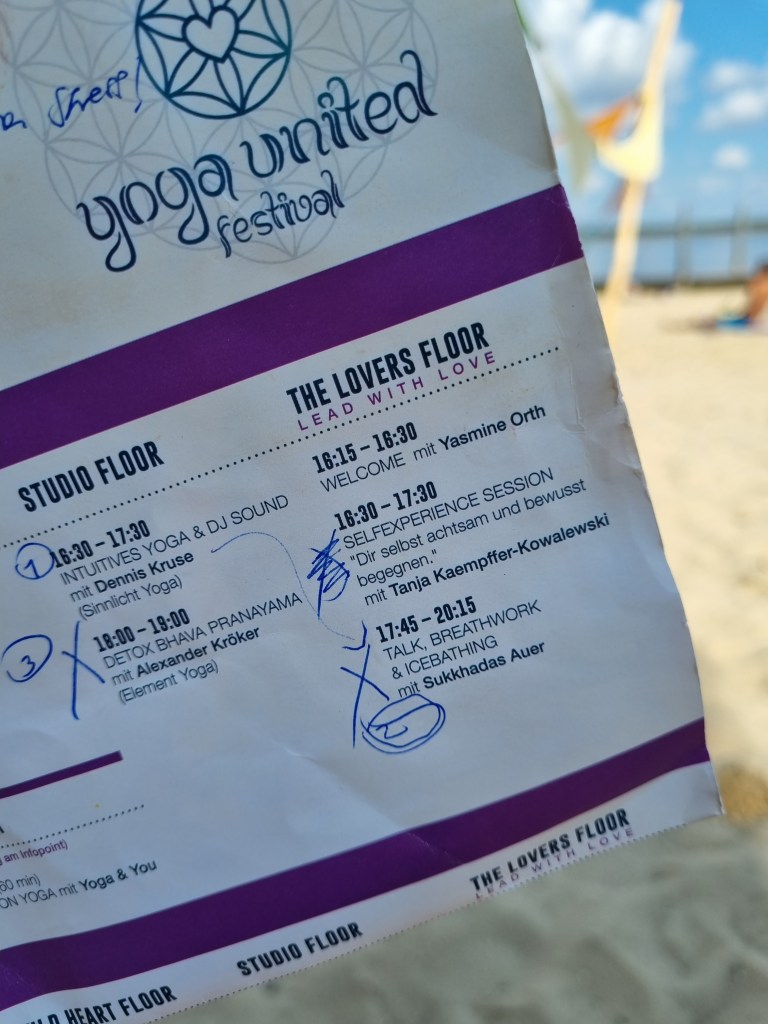 yoga united
festival
STUDIO FLOOR
16:30 – 17:30
INTUITIVES YOGA & DJ SOUND
mit Dennis Kruse
(Sinnlicht Yoga)
18:00 – 19:00
DETOX BHAVA PRANAYAMA
mit Alexander Kröker
(Element Yoga)
1
3
THE LOVERS FLOOR
LEAD WITH LOVE
16:15 – 16:30
WELCOME mit Yasmine Orth
16:30 – 17:30
SELFEXPERIENCE SESSION
"Dir selbst achtsam und bewusst
begegnen."
mit Tanja Kaempffer-Kowalewski
17:45 – 20:15
TALK, BREATHWORK
& ICEBATHING
mit Sukkhadas Auer
2
am Infopoint)
60 min)
ON YOGA mit Yoga & You
HEART FLOOR
STUDIO FLOOR
THE LOVERS FLOOR
LEAD WITH LOVE